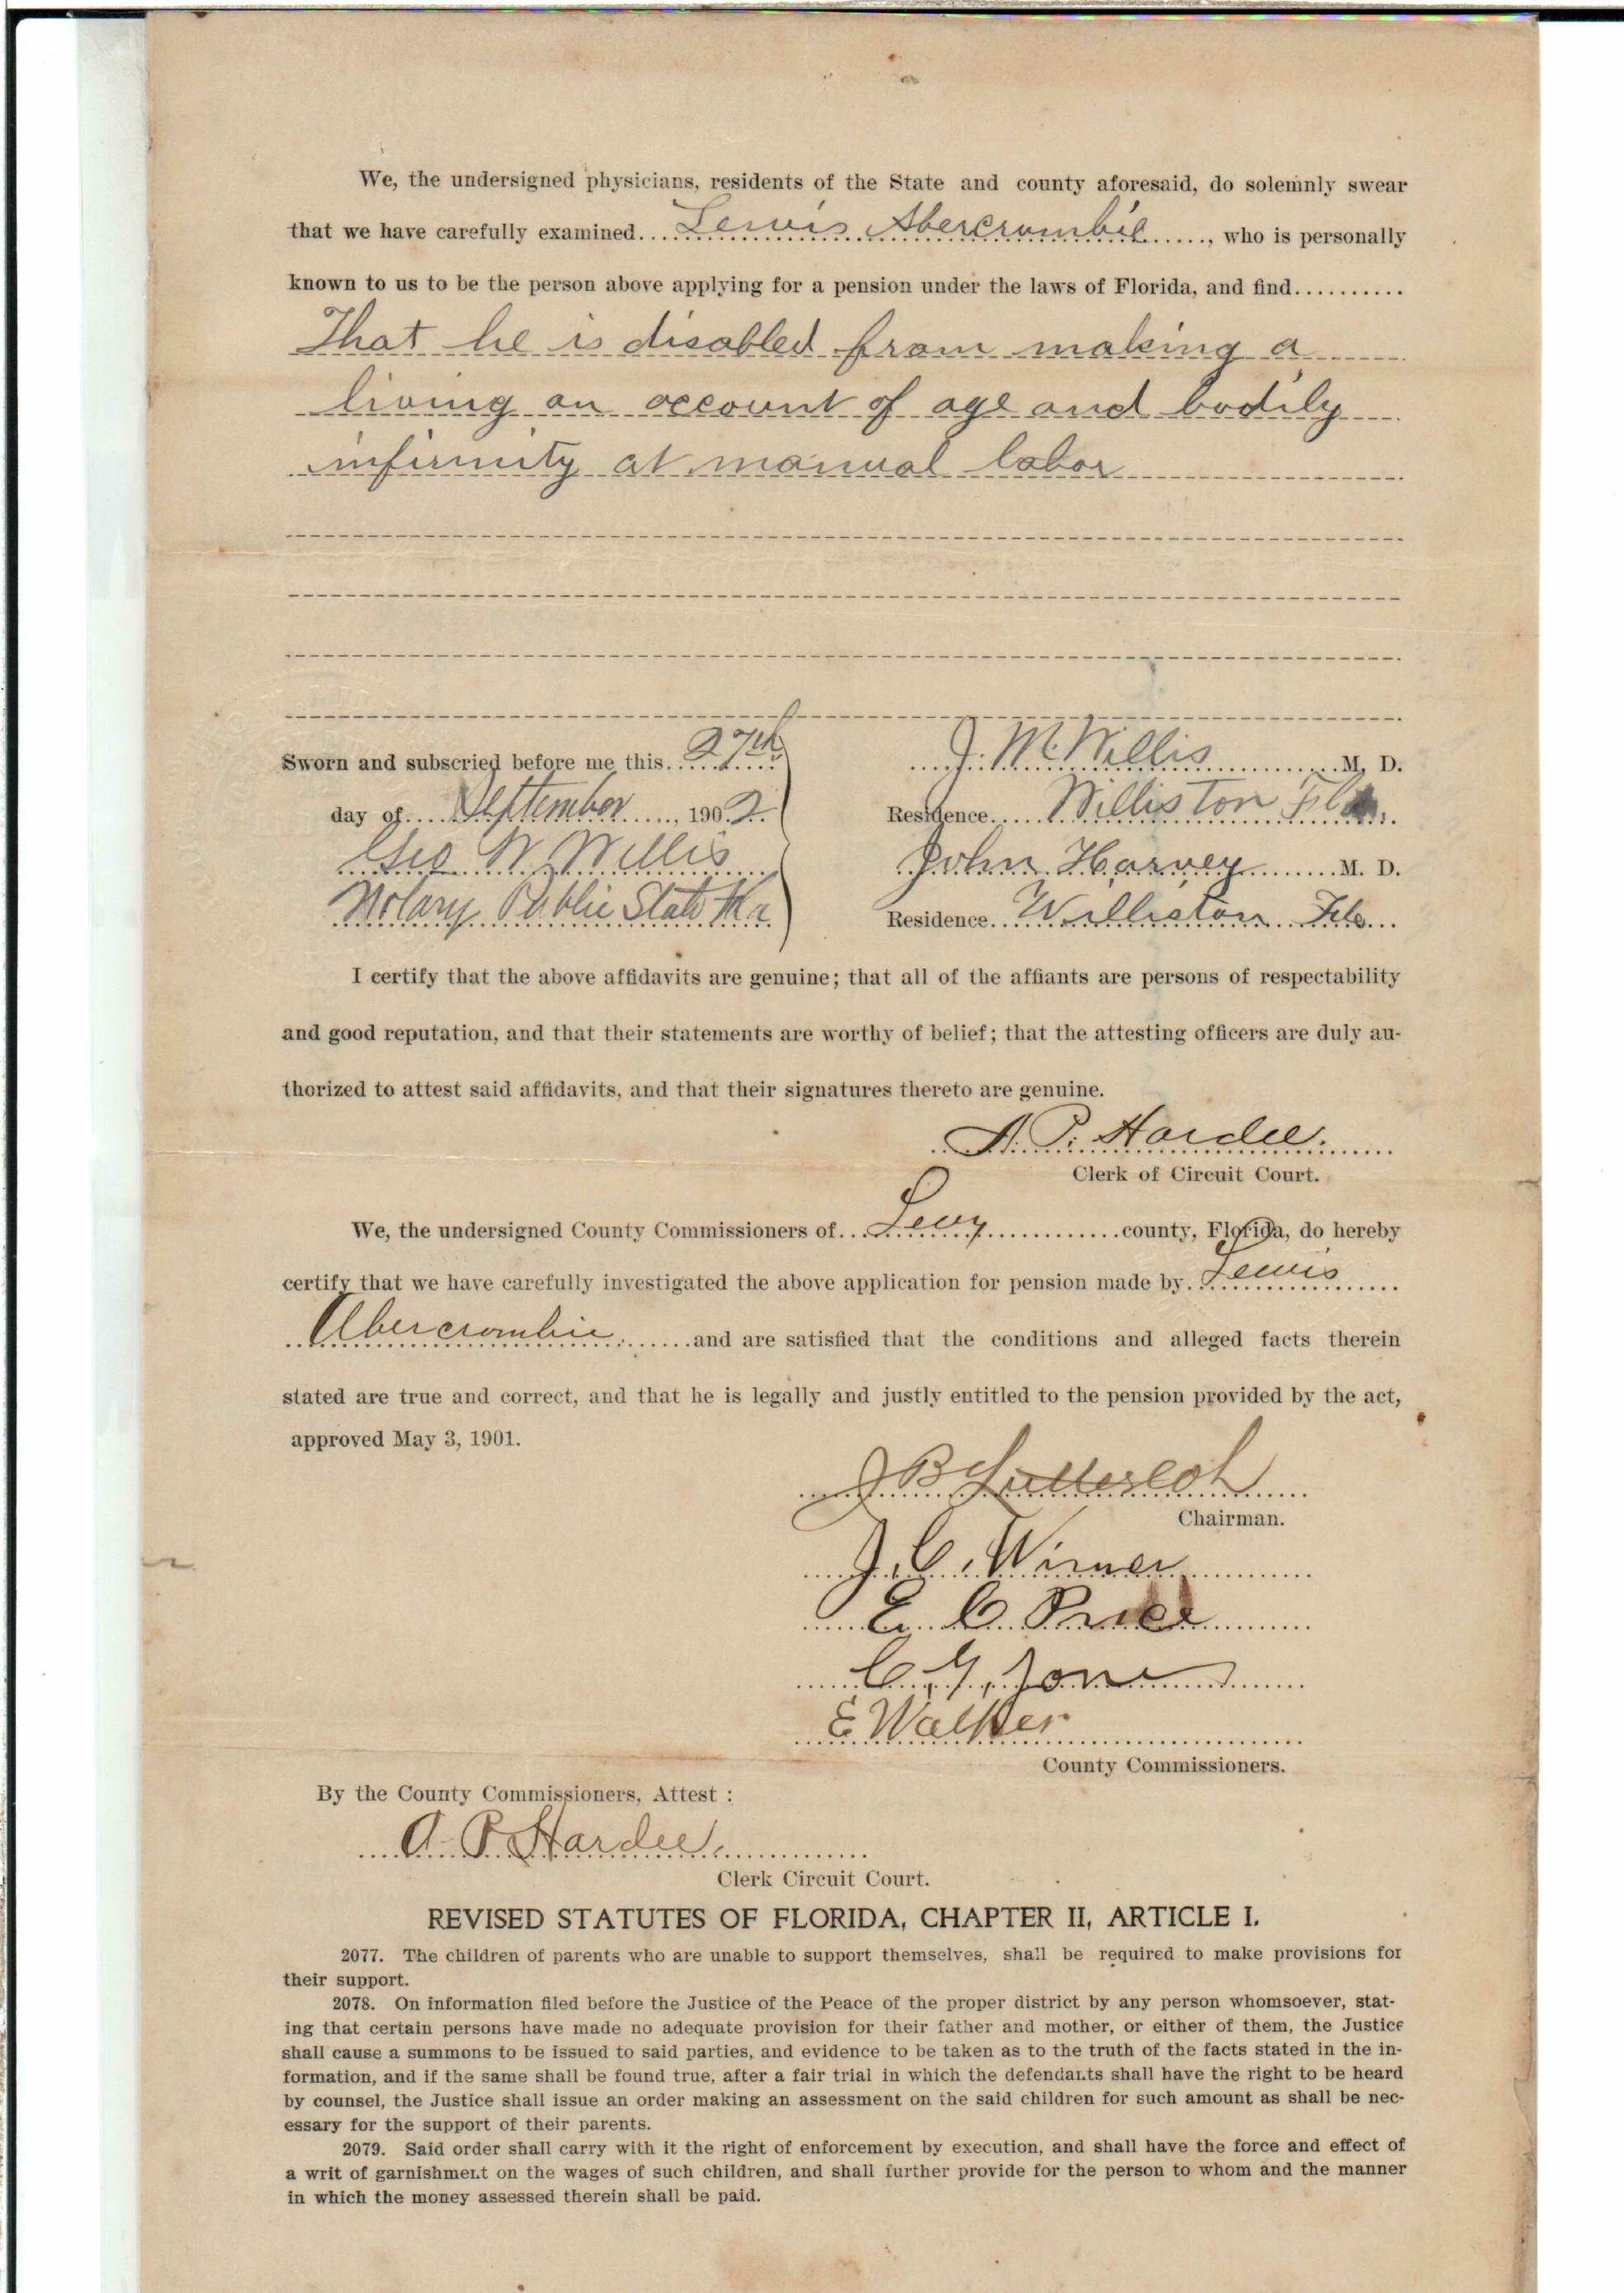 We, the undersigned physicians, residents of the State and county aforesaid, do solemnly swear
that we have carefully examined... Lewis Abercrombie ......, who is personally
known to us to be the person above applying for a pension under the laws of Florida, and find..........
That he is disabled from making a
living on account of age and bodily
infirmity at manual labor
Sworn and subscried before me this 27th
day of.... September ....., 1902.
Geo W. Willis
Notary Public State Fla
J. M. Willis M. D.
Residence..... Williston Fla.
John Harvey M. D.
Residence.. Williston Fla...
I certify that the above affidavits are genuine; that all of the affiants are persons of respectability
and good reputation, and that their statements are worthy of belief; that the attesting officers are duly au-
thorized to attest said affidavits, and that their signatures thereto are genuine.
A. P. Hardee.
Clerk of Circuit Court.
We, the undersigned County Commissioners of... Levy ............ county, Florida, do hereby
certify that we have carefully investigated the above application for pension made by. Lewis
Abercrombie ....... and are satisfied that the conditions and alleged facts therein
stated are true and correct, and that he is legally and justly entitled to the pension provided by the act,
approved May 3, 1901.
J B Lutterloh
Chairman.
J. C. Wimer
E. C. Price
C. G. Jones
E Walker
County Commissioners.
By the County Commissioners, Attest :
A. P. Hardee.
Clerk Circuit Court.
REVISED STATUTES OF FLORIDA, CHAPTER II, ARTICLE I.
2077. The children of parents who are unable to support themselves, shall be required to make provisions for
their support.
2078. On information filed before the Justice of the Peace of the proper district by any person whomsoever, stat-
ing that certain persons have made no adequate provision for their father and mother, or either of them, the Justice
shall cause a summons to be issued to said parties, and evidence to be taken as to the truth of the facts stated in the in-
formation, and if the same shall be found true, after a fair trial in which the defendants shall have the right to be heard
by counsel, the Justice shall issue an order making an assessment on the said children for such amount as shall be nec-
essary for the support of their parents.
2079. Said order shall carry with it the right of enforcement by execution, and shall have the force and effect of
a writ of garnishment on the wages of such children, and shall further provide for the person to whom and the manner
in which the money assessed therein shall be paid.